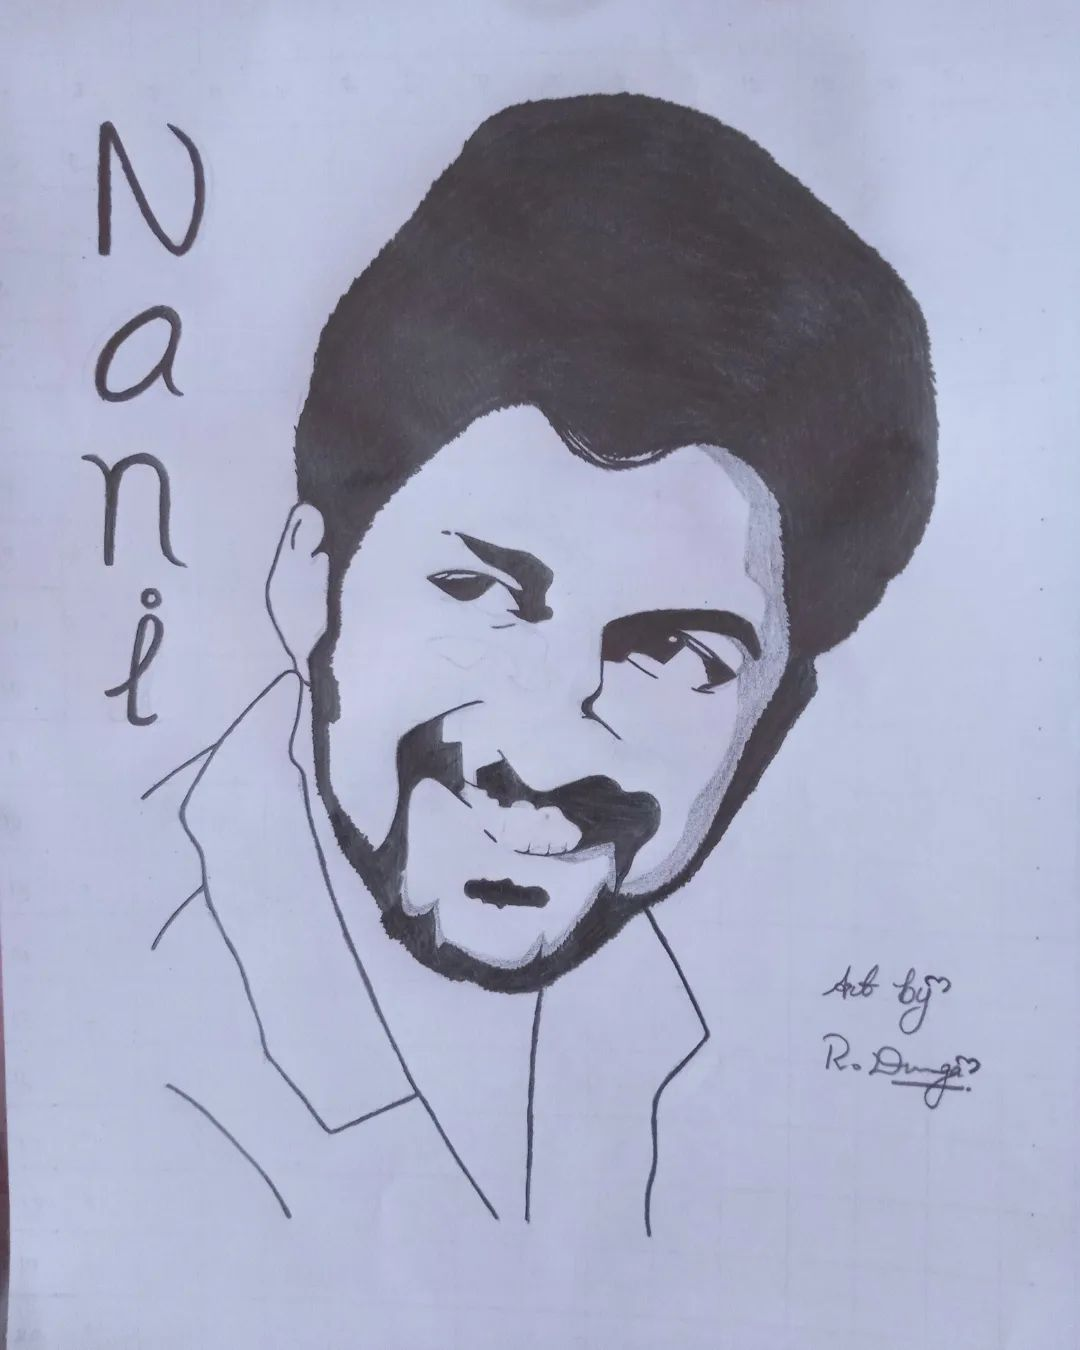 Nani
Art by
R. Durga